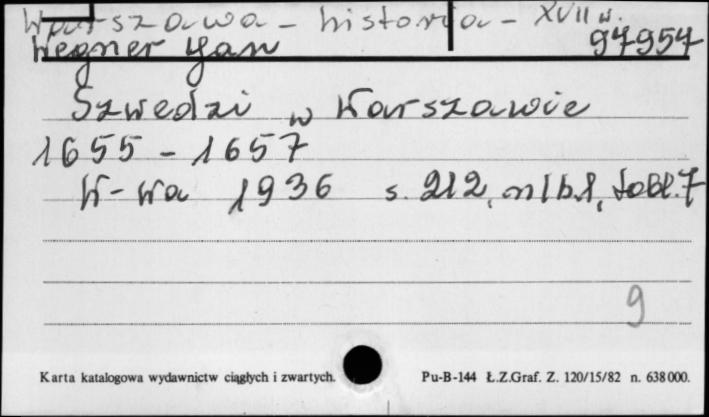 Warszawa - historia - XVII w.
Wegner Jan 97957
Szwedzi w Warszawie
1655 - 1657
W-wa 1936 s. 212, nlb.1, tabl.7
9
Karta katalogowa wydawnictw ciągłych i zwartych. Pu-B-144 Ł.Z.Graf. Z. 120/15/82 n. 638000.